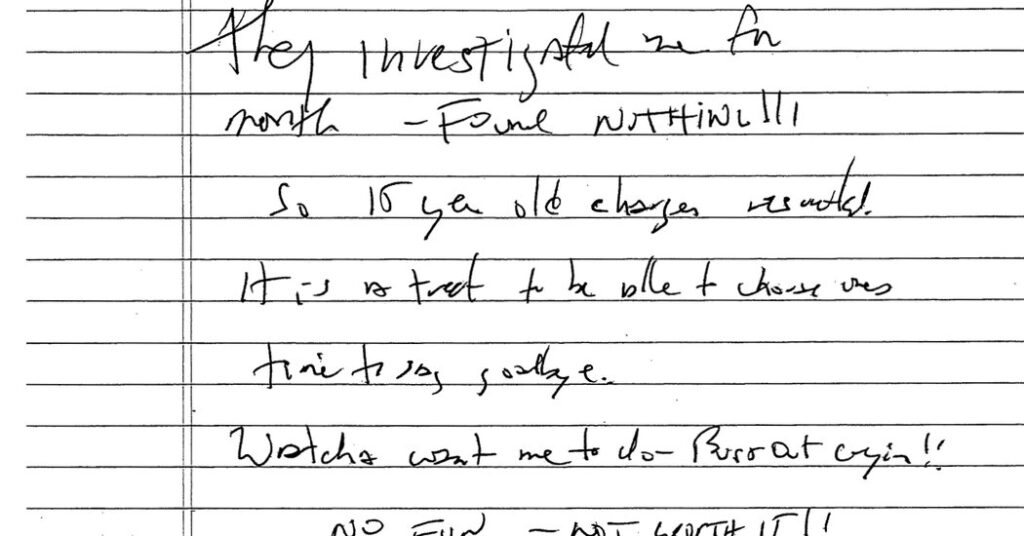 They investigated me for
month — Found NOTHING!!!
So year old charges
It is a treat to be able to choose ones
time to say goodbye.
Watcha want me to do — Burst out cryin!!
NO FUN — NOT WORTH IT!!